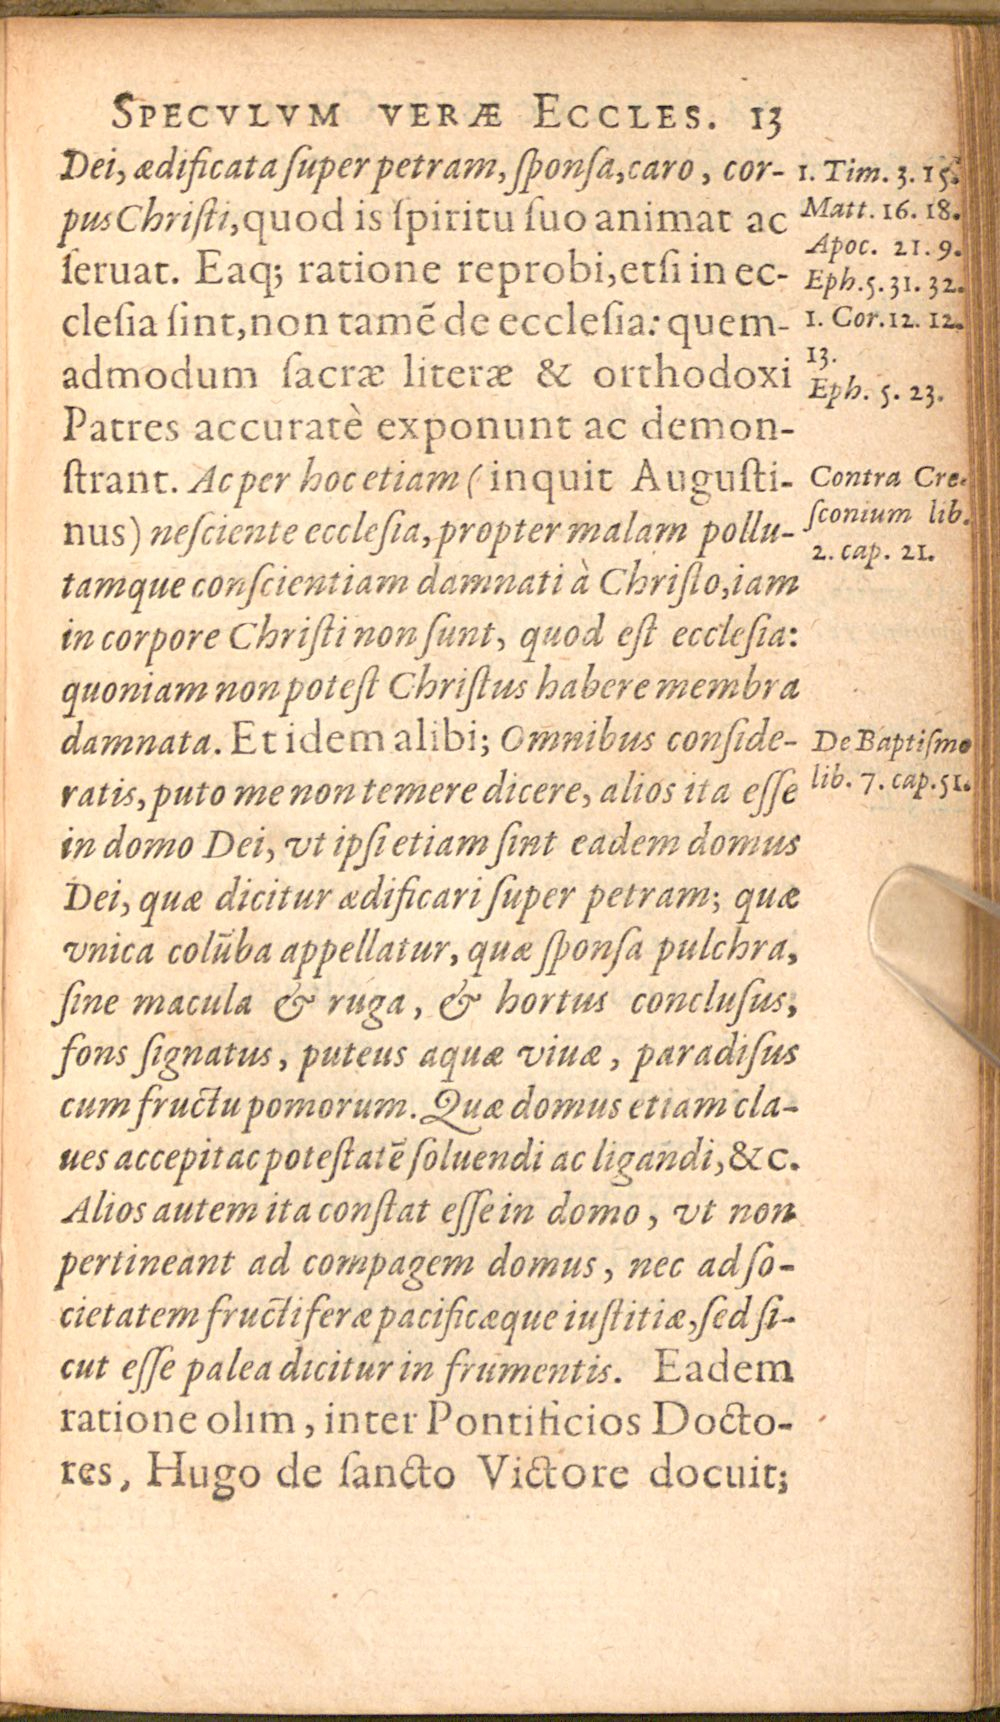 SPECVLVM VERÆ ECCLES. 13
Dei, ædificata ſuper petram, ſponſa, caro, cor-
pus Chriſti, quod is ſpiritu ſuo animat ac
ſeruat. Eaq; ratione reprobi, etſi in ec-
cleſia ſint, non tamē de eccleſia: quem-
admodum ſacræ literæ & orthodoxi
Patres accuratè exponunt ac demon-
ſtrant. Ac per hoc etiam (inquit Auguſti-
nus) neſciente eccleſia, propter malam pollu-
tamque conſcientiam damnati à Chriſto, iam
in corpore Chriſti non ſunt, quod eſt eccleſia:
quoniam non poteſt Chriſtus habere membra
damnata. Et idem alibi; Omnibus conſide-
ratis, puto me non temere dicere, alios ita eſſe
in domo Dei, vt ipſi etiam ſint eadem domus
Dei, quæ dicitur ædificari ſuper petram; quæ
vnica colūba appellatur, quæ ſponſa pulchra,
ſine macula & ruga, & hortus concluſus,
fons ſignatus, puteus aquæ viuæ, paradiſus
cum fructu pomorum. Quæ domus etiam cla-
ues accepit ac poteſtatē ſoluendi ac ligandi, &c.
Alios autem ita conſtat eſſe in domo, vt non
pertineant ad compagem domus, nec ad ſo-
cietatem fructiferæ pacificæque iuſtitiæ, ſed ſi-
cut eſſe palea dicitur in frumentis. Eadem
ratione olim, inter Pontificios Docto-
res, Hugo de ſancto Victore docuit;
1. Tim. 3. 15.
Matt. 16. 18.
Apoc. 21. 9.
Eph. 5. 31. 32.
1. Cor. 12. 12.
13.
Eph. 5. 23.
Contra Cre-
ſconium lib.
2. cap. 21.
De Baptiſmo
lib. 7. cap. 51.